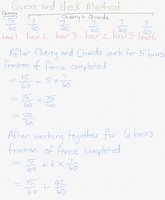 Guess and check Method
Cherry
Cherry + Chanda
15/60 7/60 7/60 7/60 7/60 7/60
hour 1 hour 2 hour 3 hour 4 hour 5 hour 6
After Cherry and Chanda work for 5 hours
fraction of fence completed
= 15/60 + 5 × 7/60
= 15/60 + 35/60
= 50/60
After working together for 6 hours
fraction of fence completed
= 15/60 + 6 × 7/60
= 15/60 + 42/60